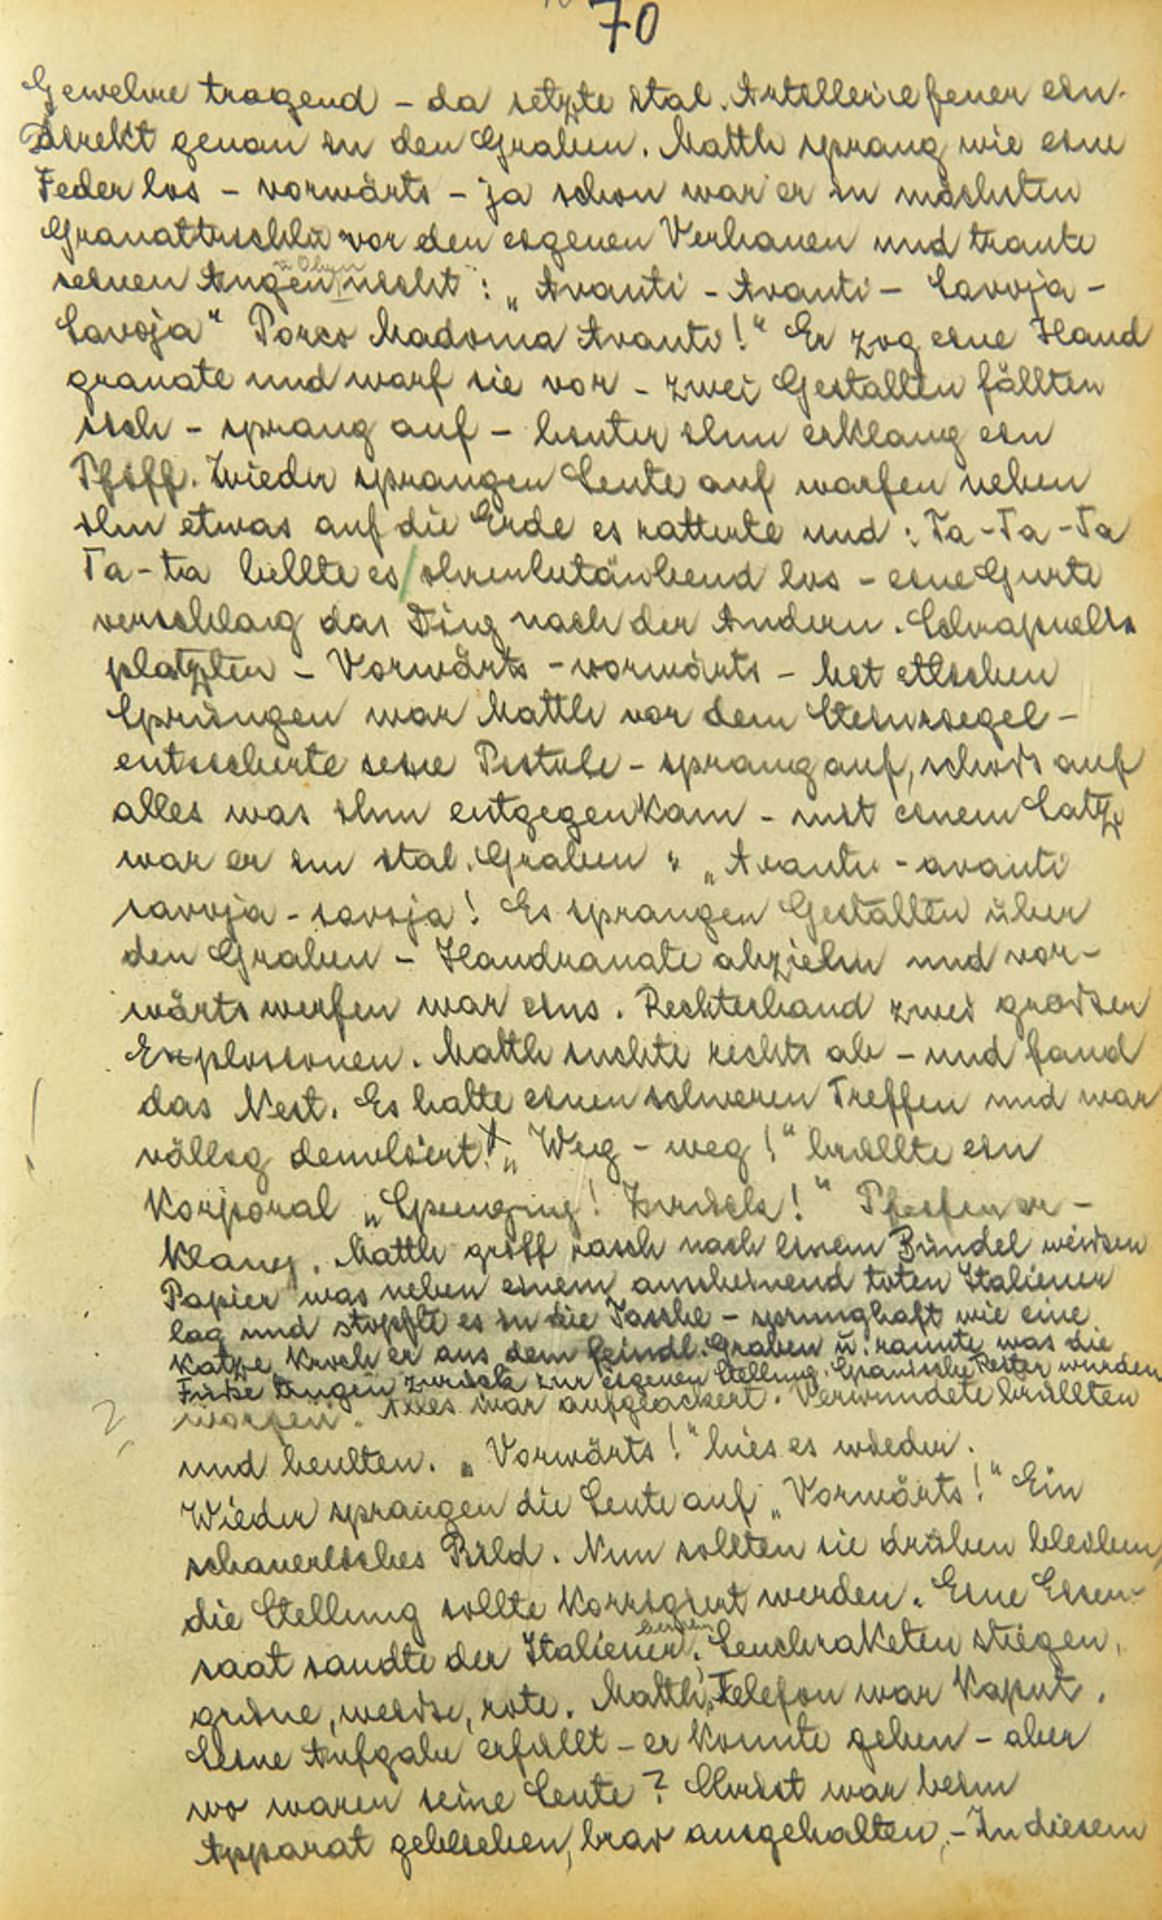 70
Gewehre tragend – da setzte ital. Artilleriefeuer ein.
Direkt genau in den Graben. Matth sprang wie eine
Feder los – vorwärts – ja schon war er im nächsten
Granattrichter vor den eigenen Verhauen und traute
seinen Augen u Ohren nicht : „Avanti – Avanti – Savoja –
Savoja" Porco Madonna Avanti!" Er zog eine Hand
granate und warf sie vor – zwei Gestalten fällten
sich – sprang auf – hinter ihm erklang ein
Pfiff. Wieder sprangen Leute auf warfen neben
ihn etwas auf die Erde es ratterte und : Ta-Ta-Ta
Ta-ta bellte es ohrenbetäubend los – eine Gurte
verschlang das Ding nach der Andern. Schrapnells
platzten – Vorwärts – vorwärts – Mit etlichen
Sprüngen war Matth vor dem Steinriegel –
entsicherte seine Pistole – sprang auf, schoss auf
alles was ihm entgegenkam – mit einem Satze
war er im ital. Graben „Avanti – avanti
savoja – savoja! Es sprangen Gestalten über
den Graben – Handranate abziehn und vor-
wärts werfen war eins. Rechterhand zwei grosser
Explosionen. Matth suchte rechts ab – und fand
das Nest. Es hatte einen schweren Treffen und war
völlig demoliert! „Weg – weg!" brüllte ein
Korporal „Sprengung! Zurück!" Pfeifen er-
klang. Matth griff rasch nach einem Bündel weissen
Papier was neben einem anscheinend toten Italiener
lag und stopfte es in die Tasche – sprunghaft wie eine
Katze kroch er aus dem feindl. Graben u. rannte was die
Füsse trugen zurück zur eigenen Stellung. Spanische Reiter wurden
worfen. Alles war aufgeackert. Verwundete brüllten
und heulten. „Vorwärts!" hies es wieder.
Wieder sprangen die Leute auf „Vorwärts!" Ein
schauerliches Bild. Nun sollten sie drüben bleiben,
die Stellung sollte korrigiert werden. Eine Eisen-
saat sandte der Italiener. Leuchraketen stiegen,
grüne, weisse, rote. Matth, Telefon war kaput.
Seine Aufgabe erfüllt – er konnte gehen – aber
wo waren seine Leute? Christ war beim
Apparat geblieben, brav ausgehalten, – In diesem